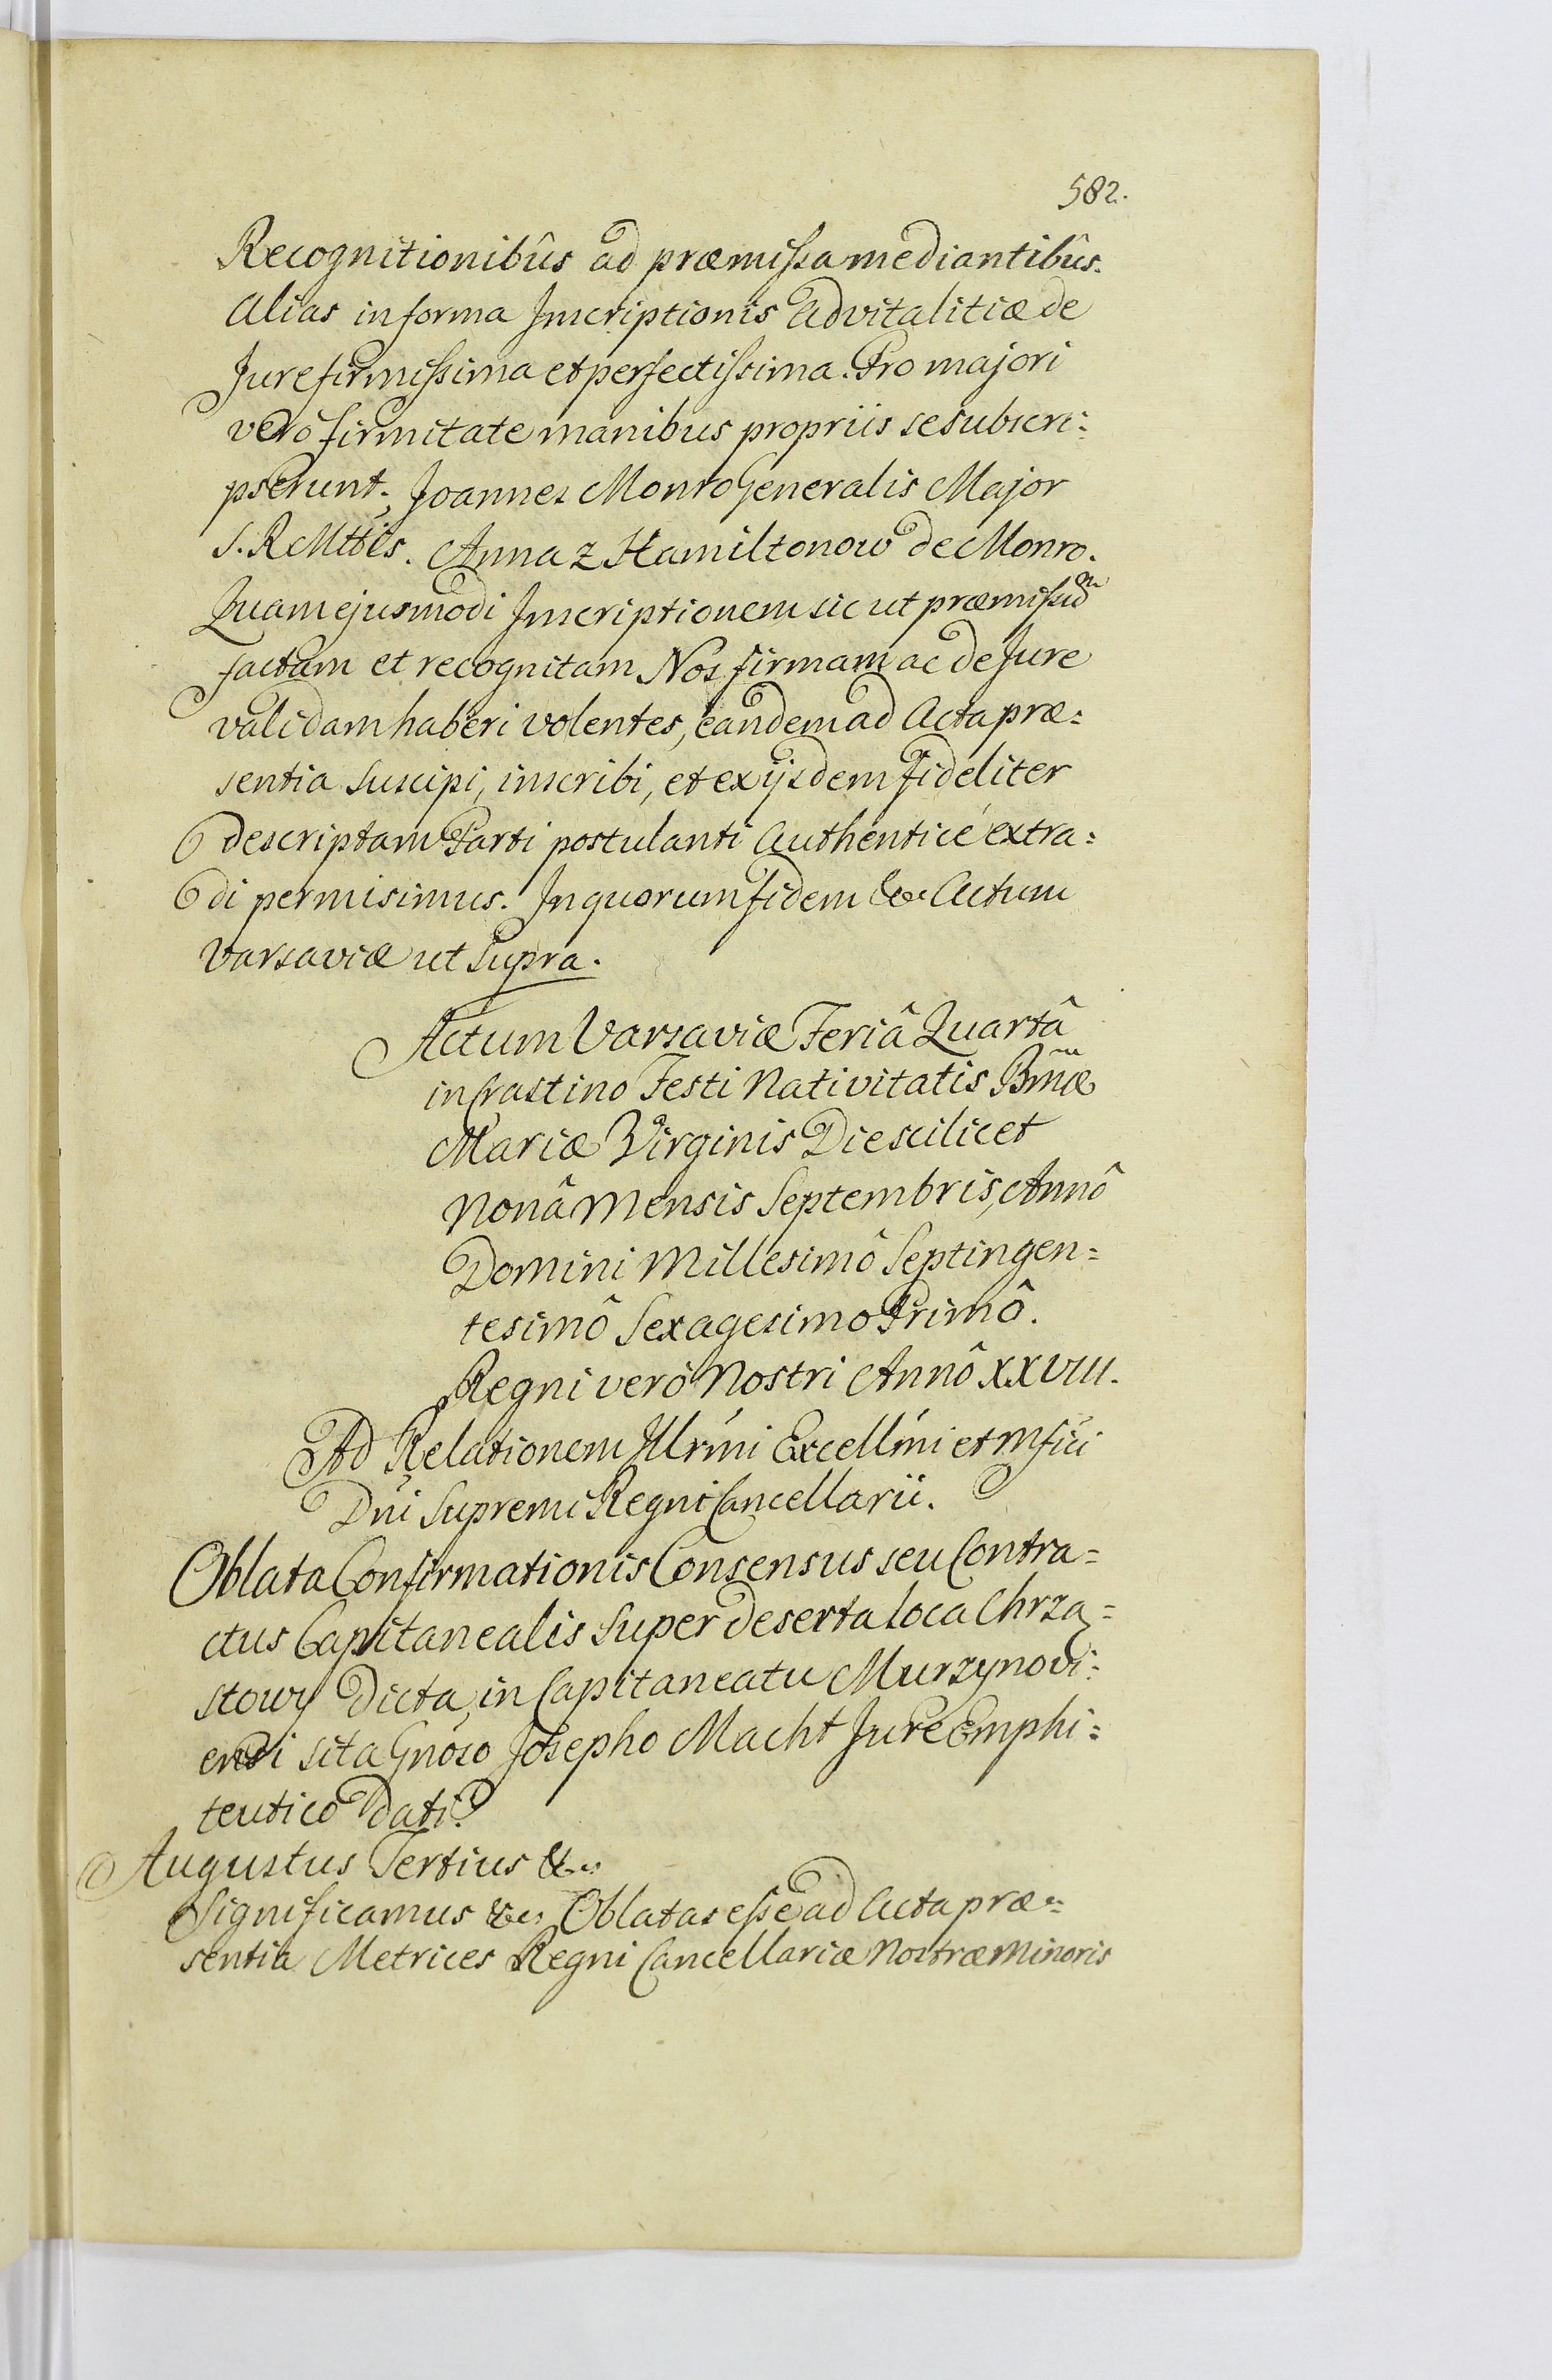 582.
Recognitionibûs ad præmissa mediantibûs.
Alias in forma Inscriptionis Advitalitiæ de
Jure firmissima et perfectissima. Pro majori
verò firmitate manibus propriis se subscri=
pserunt. Joannes Monro Generalis Major
S. R Mttis. Anna z Hamiltonow de Monro.
Quam ejusmodi Inscriptionem sic ut præmissũ
factam et recognitam Nos firmam ac de Jure
validam haberi volentes, eandem ad Acta præ=
sentia suscipi, inscribi, et ex ijsdem fideliter
descriptam Parti postulanti Authenticè extra=
di permisimus. In quorum fidem &c. Actum
Varsaviæ ut supra.
Actum Varsaviæ Feriâ Quartâ
in Crastino Festi Nativitatis Bmæ
Mariæ Virginis Die scilicet
Nonâ Mensis Septembris, Annô
Domini Millesimô Septingen=
tesimô Sexagesimo Primô.
Regni verò Nostri Annô XXVIII.
Ad Relationem Illrmi Excellmi et Mfici
Dni Supremi Regni Cancellarii.
Oblata Confirmationis Consensus seu Contra=
ctus Capitanealis super deserta loca Chrzą=
stowy dicta, in Capitaneatu Murzynovi=
ensi sita Gnoso Josepho Macht Jure Emphi=
teutico Dati.
Augustus Tertius &c.
Significamus &c. Oblatas esse ad Acta præ=
sentia Metrices Regni Cancellariæ Nostræ Minoris